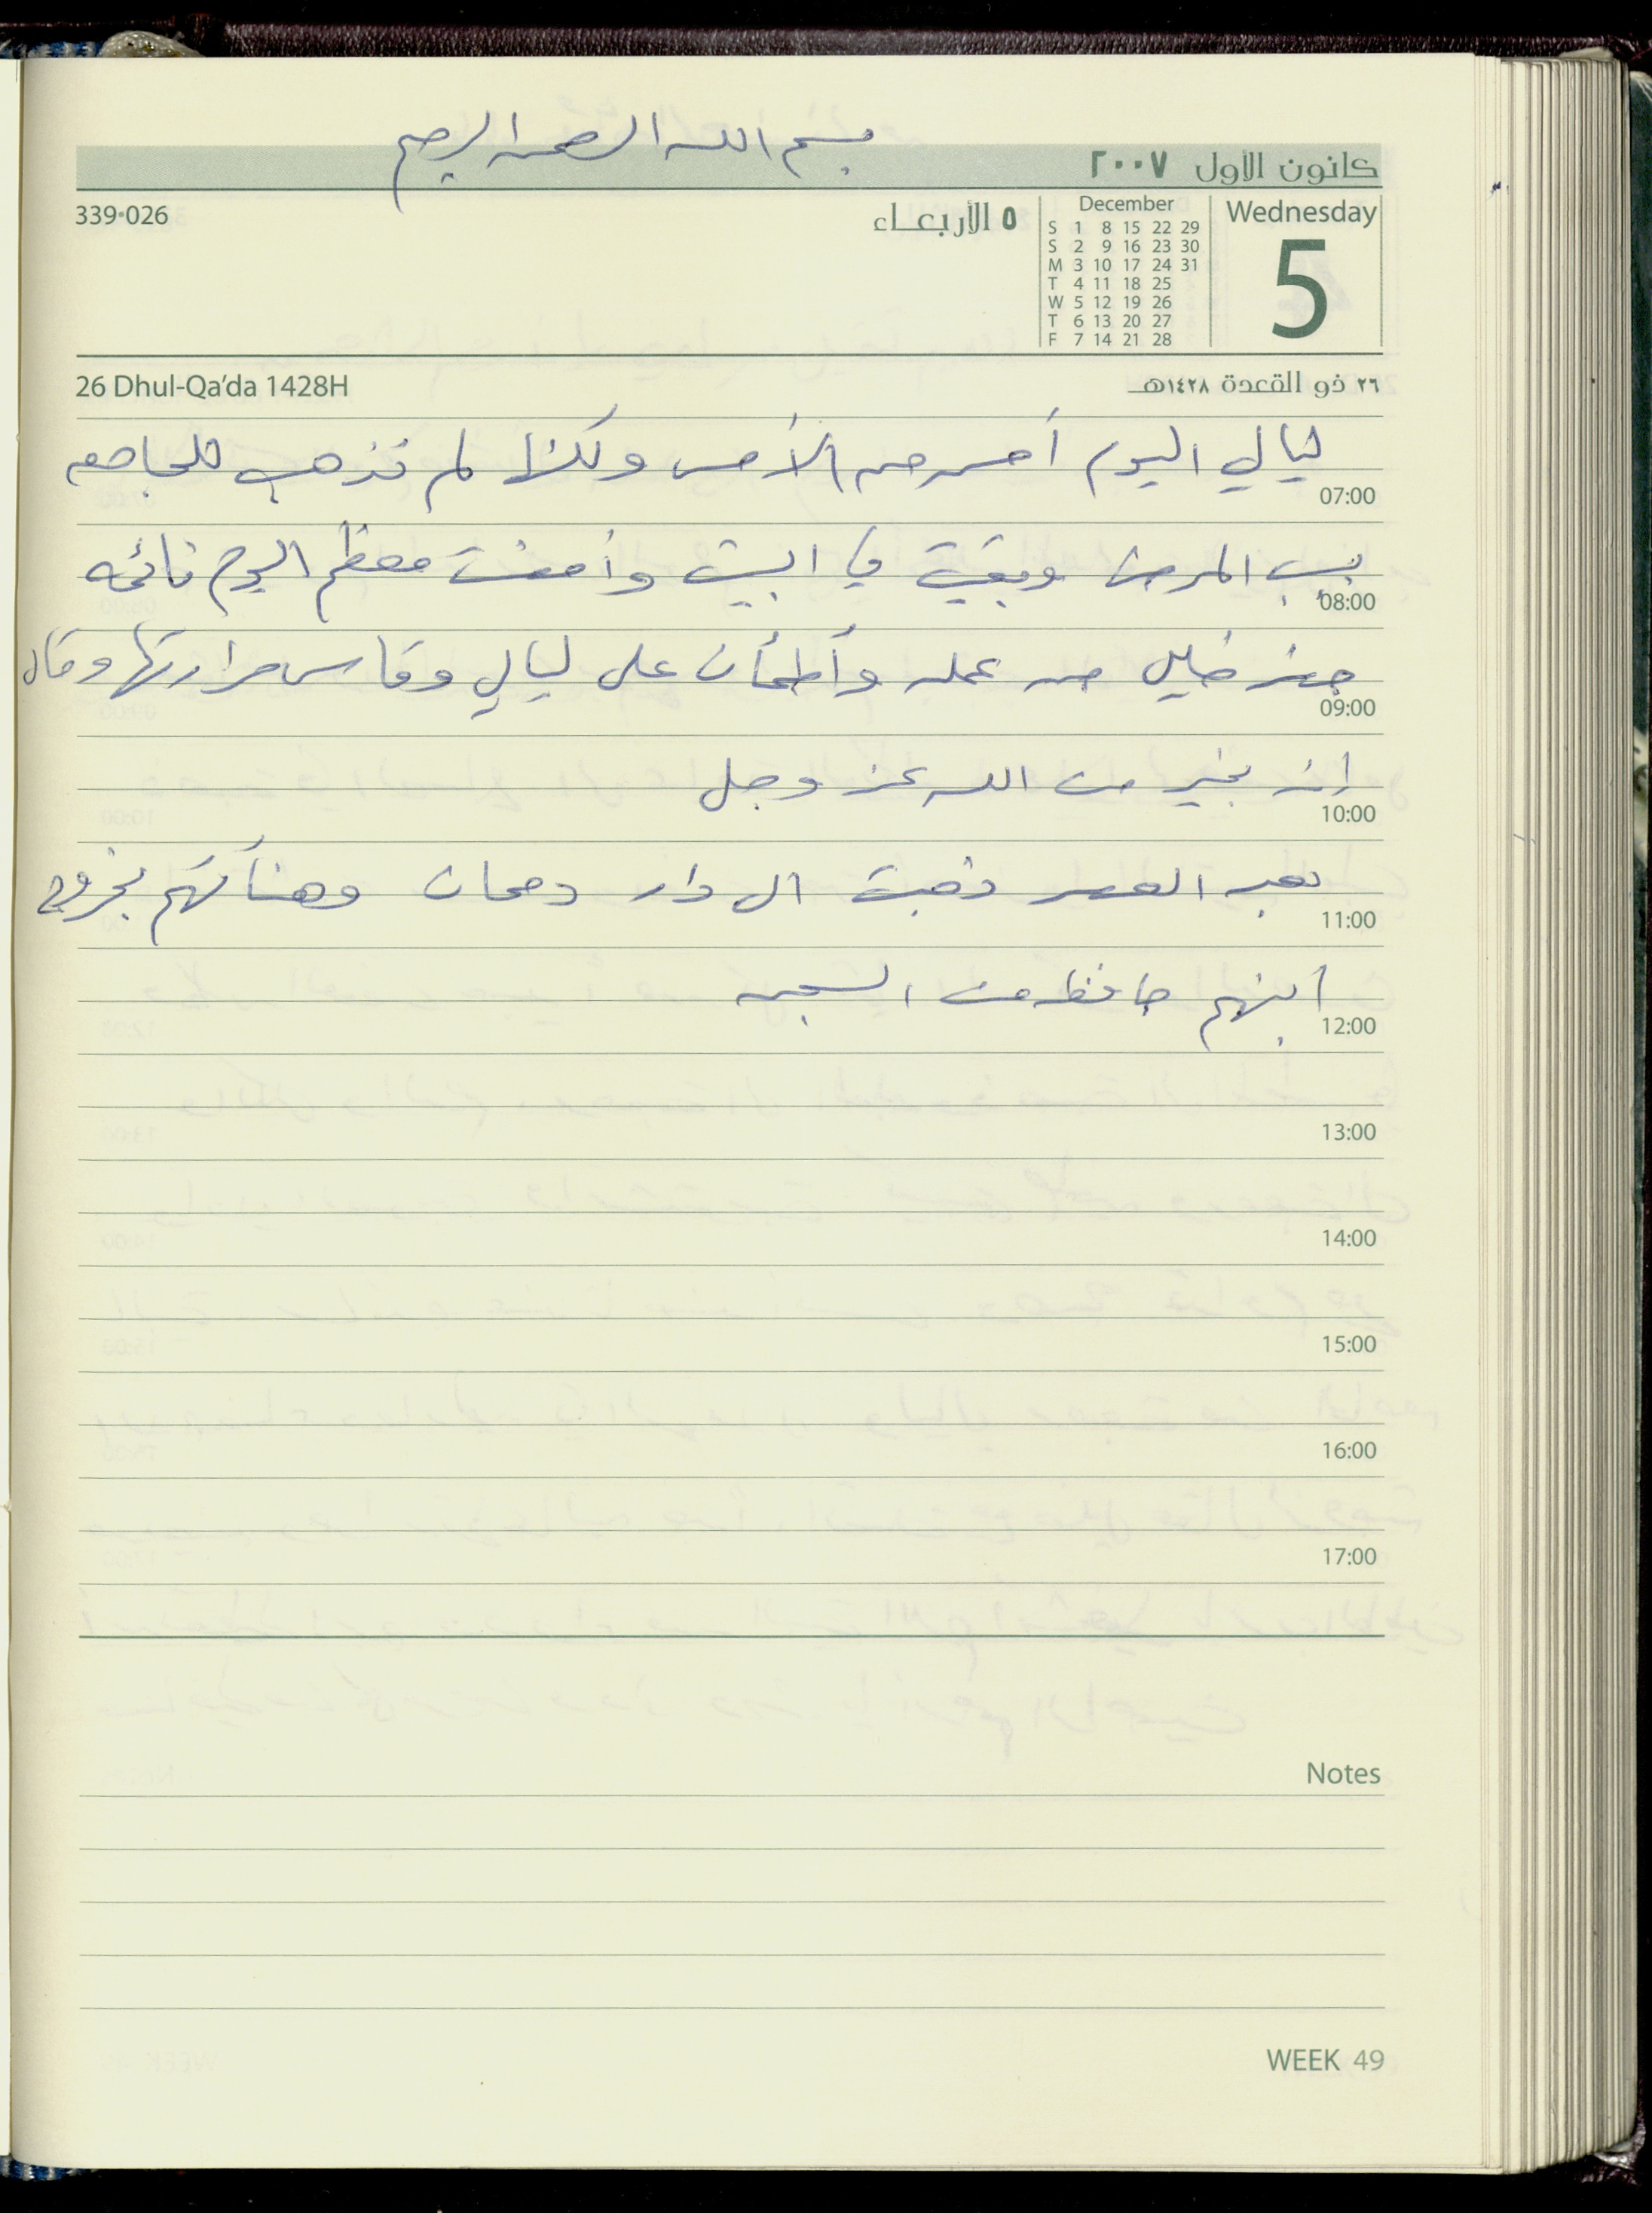 بسم الله الرحمن الرحيم
كانون الأول ٢٠٠٧
339-026
٥ الأربعاء
December
S 1 8 15 22 29
S 2 9 16 23 30
M 3 10 17 24 31
T 4 11 18 25
W 5 12 19 26
T 6 13 20 27
F 7 14 21 28
Wednesday
5
26 Dhul-Qa'da 1428H
٢٦ ذو القعدة ١٤٢٨هـ
ليالي اليوم أحسن من الأمس ولكنها لم تذهب للجامعه
07:00
بسبب المرض وبقيت في البيت وأمضت معظم اليوم نائمه
08:00
حضر خليل من عمله وأطمأن على ليالي وقاس حرارتها وقال
09:00
انه بخير من الله عز وجل
10:00
بعد العصر ذهبت الى دار دحمان وهنأتهم بخروج
11:00
أبنهم حافظ من السجن
12:00
13:00
14:00
15:00
16:00
17:00
Notes
WEEK 49